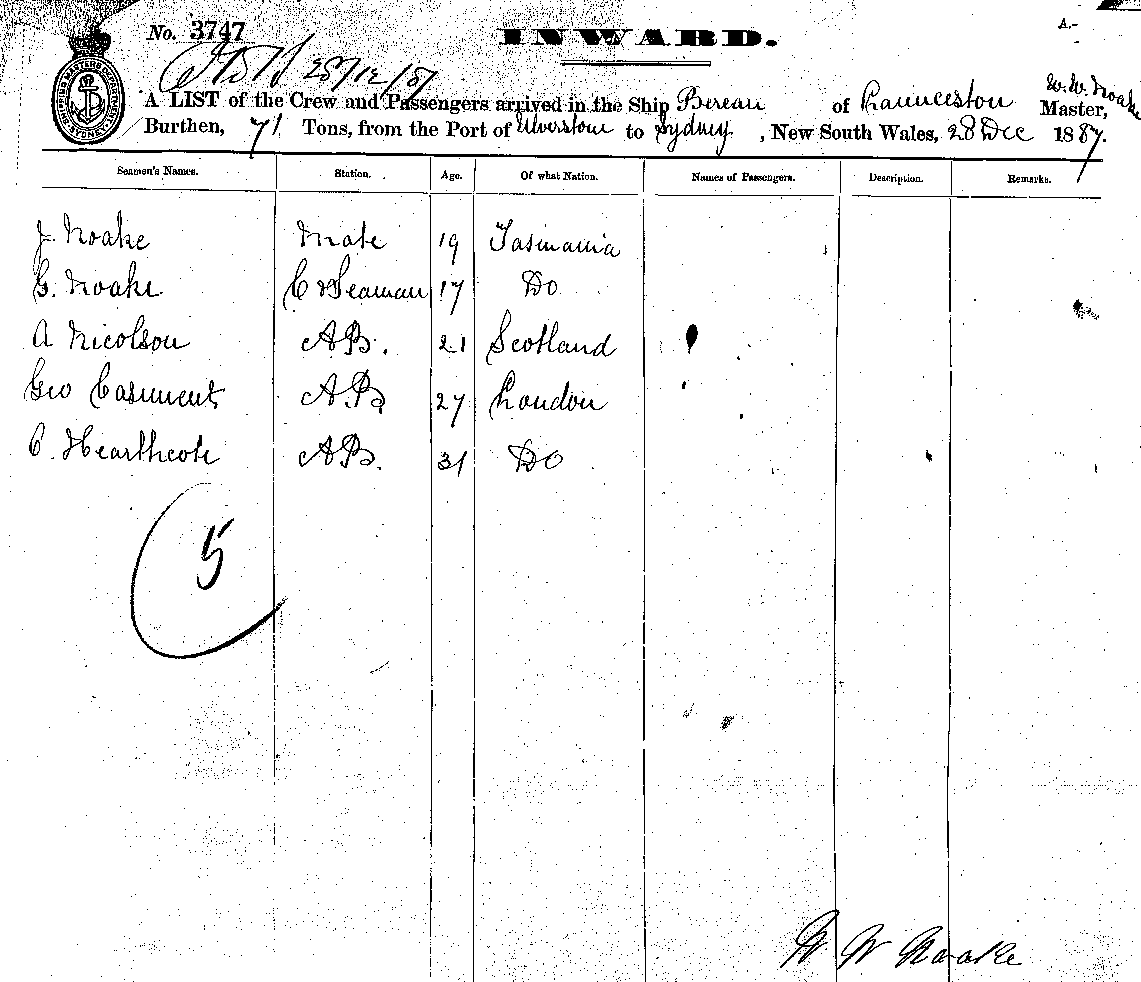 No. 3747
INWARD.
A.-
28/12/87
W. W. Noake
A LIST of the Crew and Passengers arrived in the Ship Bereau of Launceston Master,
Burthen, 71 Tons, from the Port of Ulverstone to Sydney, New South Wales, 28 Dec 1887.
Seamen's Names. Station. Age. Of what Nation. Names of Passengers. Description. Remarks.
J. Noake Mate 19 Tasmania
G. Noake C & Seaman 17 Do
A Nicolson A.B. 21 Scotland
Geo Casment A.B 27 London
C. Hearthcote A.B. 31 Do
5
W W Noake